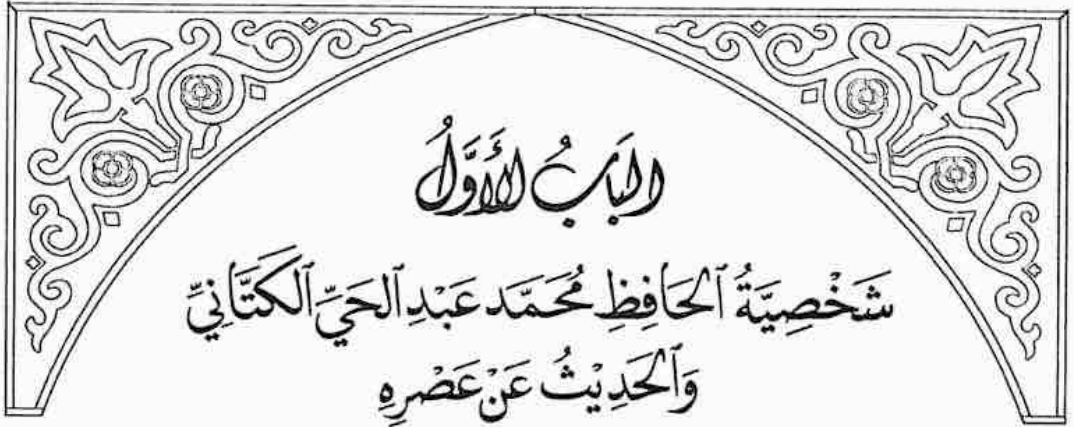 البَابُ الأَوَّلُ
شَخْصِيَّةُ ٱلحَافِظِ مُحَمَّد عَبْدِ ٱلحَيِّ ٱلكَتَّانِيِّ
وَٱلحَدِيْثُ عَنْ عَصْرِهِ